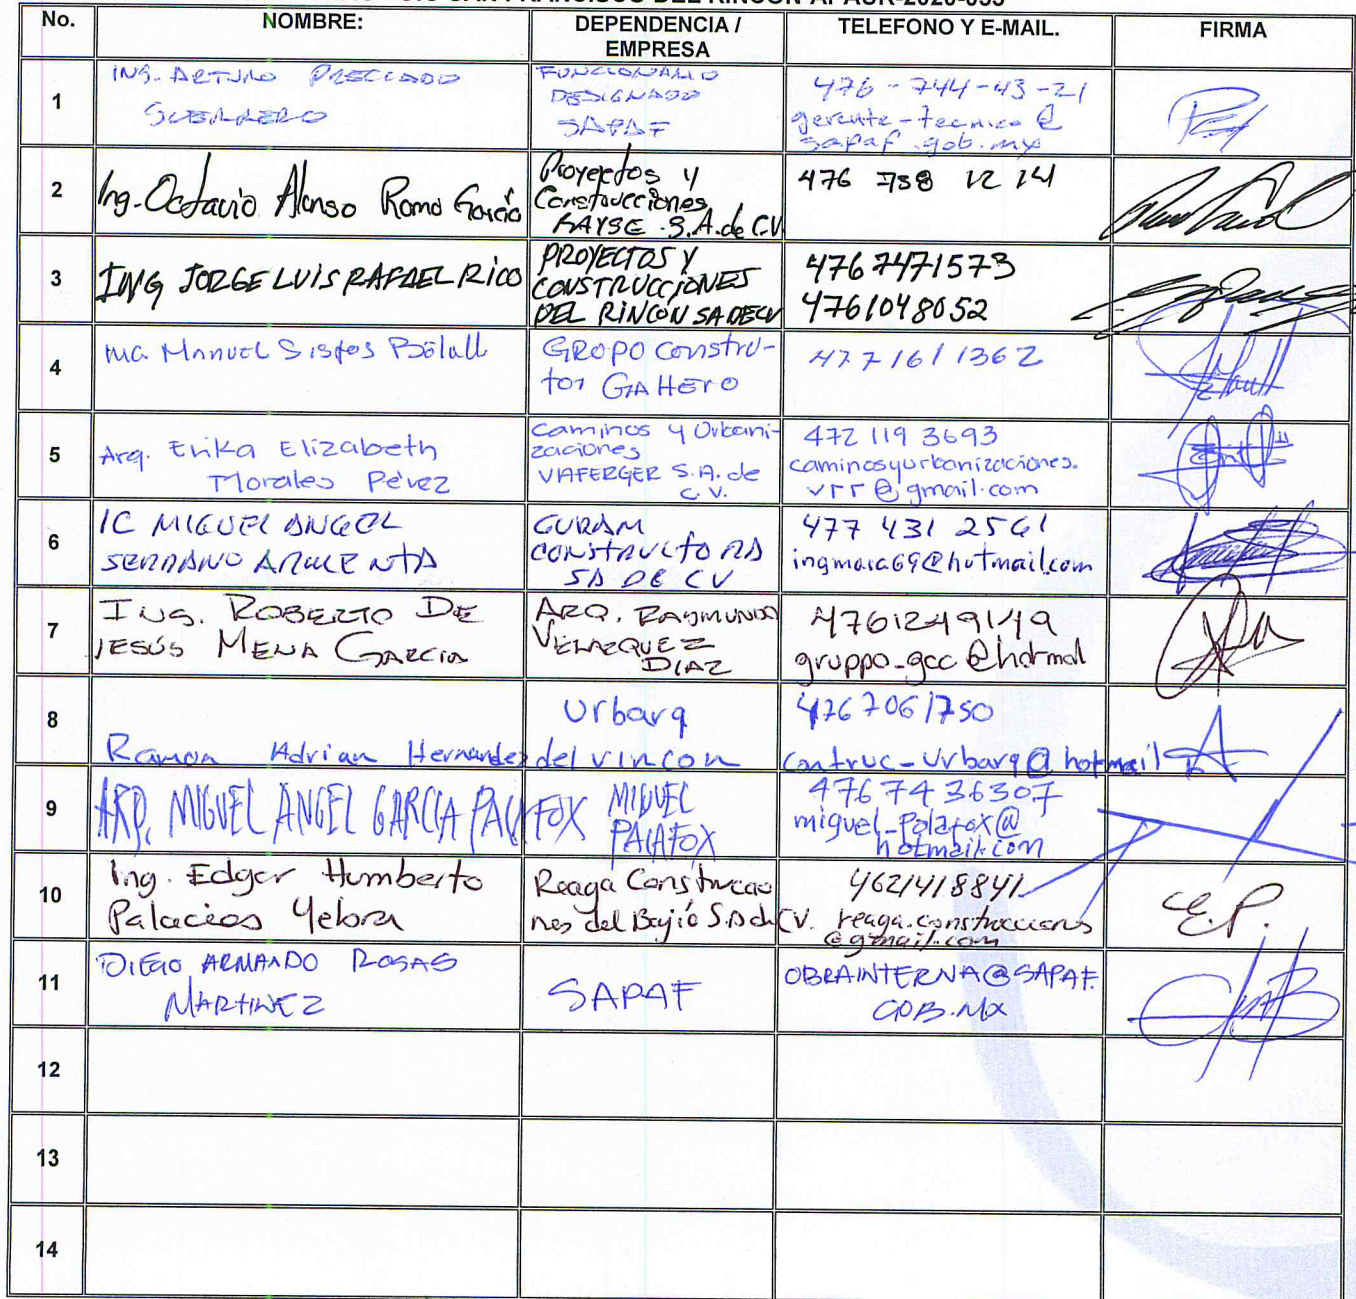 SAN FRANCISCO DEL RINCON APAUR-2020-033
No. NOMBRE: DEPENDENCIA / EMPRESA TELEFONO Y E-MAIL. FIRMA
1
ING. ARTURO PRECIADO
GUERRERO
FUNCIONARIO
DESIGNADO
SAPAF
476-744-43-21
gerente-tecnico@
sapaf.gob.mx
2
Ing. Octavio Alonso Romo García
Proyectos y
Construcciones
S.A. de C.V
476 758 12 14
3
ING JORGE LUIS RAFAEL RICO
PROYECTOS Y
CONSTRUCCIONES
DEL RINCÓN SA DE CV
476 7471573
4761048052
4
Ma. Manuel Sistos
GRUPO Constru-
tor GAHERO
477 161 1362
5
Arq. Erika Elizabeth
Morales Pérez
Caminos y Urbani-
zaciones
VIAFERGER S.A. de
C.V.
472 119 3693
caminosyurbanizaciones.
vrr@gmail.com
6
IC MIGUEL ANGEL
SERRANO ARMENTA
GURAM
CONSTRUCTORA
SA DE CV
477 431 2561
ingmasa69@hotmail.com
7
ING. ROBERTO DE
JESÚS MENA GARCIA
ARQ. RAYMUNDO
VELAZQUEZ
DIAZ
4761249149
gruppo_gcc@hotmal
8
Ramon Adrian Hernandez
Urbarq
del rincon
476 706 1750
contruc-urbarq@hotmail
9
ARQ. MIGUEL ANGEL GARCIA PALAFOX
MIGUEL
PALAFOX
476 74 36307
miguel_Palafox@
hotmail.com
10
Ing. Edgar Humberto
Palacios Yebra
Reaga Construccio
nes del Bajío S.A de CV.
4621418841
reaga.construcciones
@gmail.com
E.P.
11
DIEGO ARMANDO ROSAS
MARTINEZ
SAPAF
OBRAINTERNA@SAPAF.
GOB.MX
12
13
14